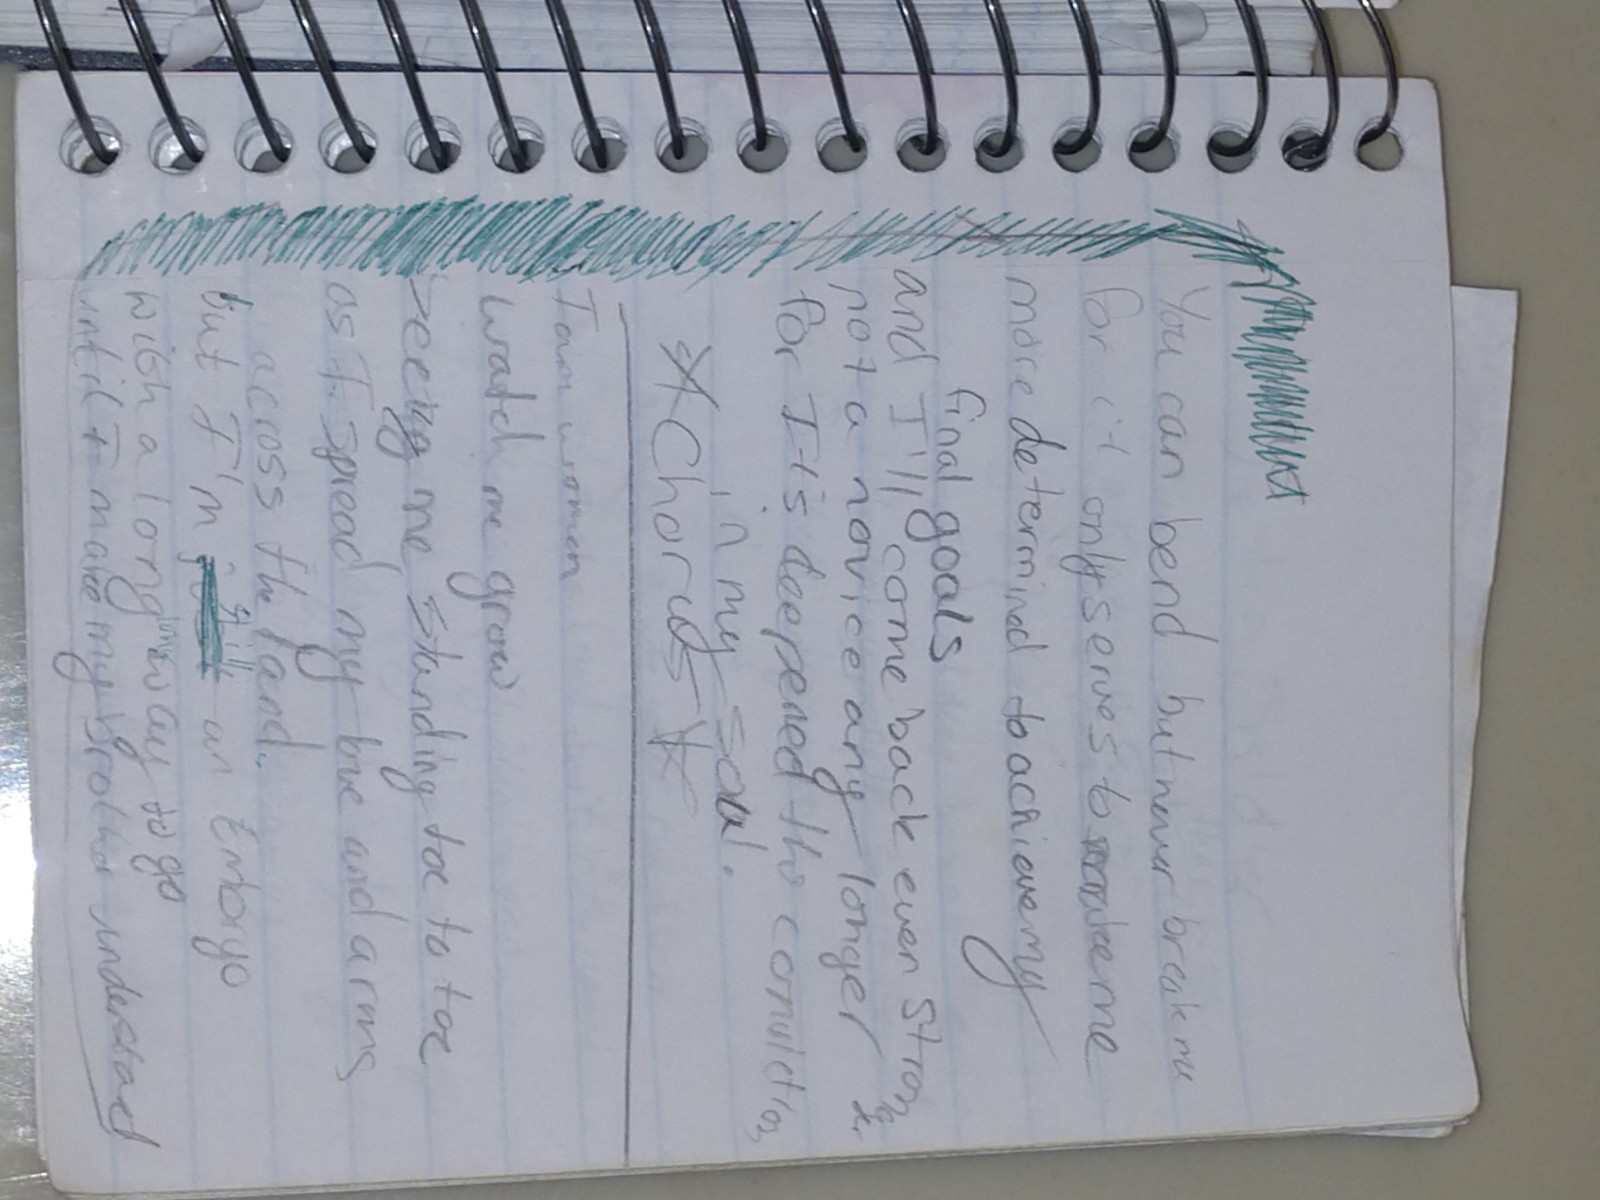 You can bend but never break me
for it only serves to make me
more determind to achieve my
final goals
and I'll come back even stronger
not a novice any longer
for It's deepened the conviction
in my soul.
*Chorus*
I am women
watch me grow
Seeing me standing toe to toe
as I spread my
and arms
across the land.
but I'm still an Embryo
wish a long long way to go
until I make my brother understand